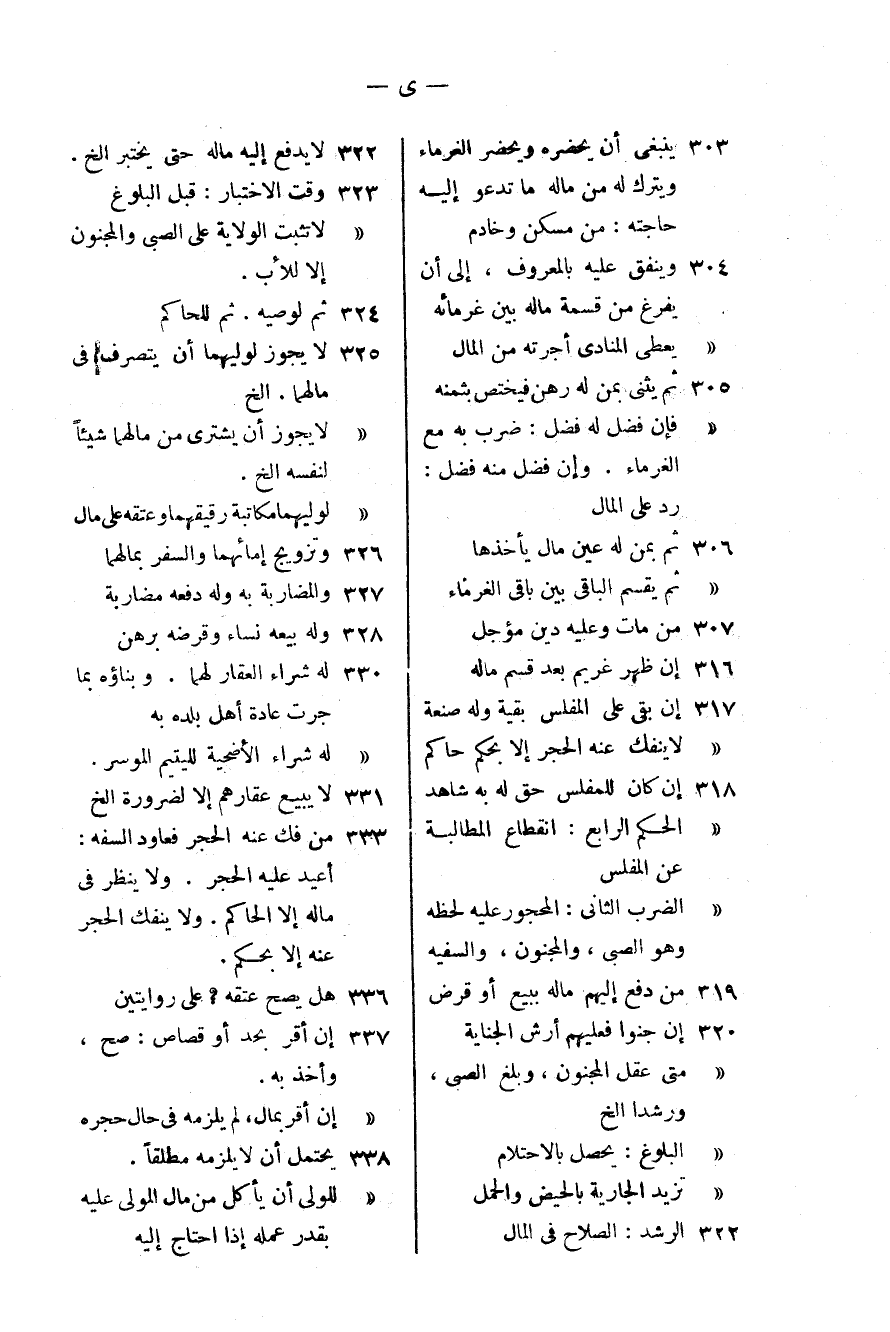 — ى —
٣٠٣ ينبغى أن يحضره ويحضر الغرماء
ويترك له من ماله ما تدعو إليه
حاجته : من مسكن وخادم
٣٠٤ وينفق عليه بالمعروف ، إلى أن
يفرغ من قسمة ماله بين غرمائه
« يعطى المنادى أجرته من المال
٣٠٥ ثم يثنى بمن له رهن فيختص بثمنه
« فإن فضل له فضل : ضرب به مع
الغرماء . وإن فضل منه فضل :
رد على المال
٣٠٦ ثم بمن له عين مال يأخذها
« ثم يقسم الباقى بين باقى الغرماء
٣٠٧ من مات وعليه دين مؤجل
٣١٦ إن ظهر غريم بعد قسم ماله
٣١٧ إن بقى على المفلس بقية وله صنعة
« لاينفك عنه الحجر إلا بحكم حاكم
٣١٨ إن كان للمفلس حق له به شاهد
« الحكم الرابع : انقطاع المطالبة
عن المفلس
« الضرب الثانى : المحجور عليه لحظه
وهو الصبى ، والمجنون ، والسفيه
٣١٩ من دفع إليهم ماله ببيع أو قرض
٣٢٠ إن جنوا فعليهم أرش الجناية
« متى عقل المجنون ، وبلغ الصبى ،
ورشدا الخ
« البلوغ : يحصل بالاحتلام
« تزيد الجارية بالحيض والحمل
٣٢٢ الرشد : الصلاح فى المال
٣٢٢ لايدفع إليه ماله حتى يختبر الخ .
٣٢٣ وقت الاختبار : قبل البلوغ
« لاتثبت الولاية على الصبى والمجنون
إلا للأب .
٣٢٤ ثم لوصيه . ثم للحاكم
٣٢٥ لا يجوز لوليهما أن يتصرف فى
مالهما . الخ
« لايجوز أن يشترى من مالهما شيئاً
لنفسه الخ .
« لوليهما مكاتبة رقيقهما وعتقه على مال
٣٢٦ وتزويج إمائهما والسفر بمالهما
٣٢٧ والمضاربة به وله دفعه مضاربة
٣٢٨ وله بيعه نساء وقرضه برهن
٣٣٠ له شراء العقار لهما . وبناؤه بما
جرت عادة أهل بلده به
« له شراء الأضحية لليتيم الموسر .
٣٣١ لا يبيع عقارهم إلا لضرورة الخ
٣٣٣ من فك عنه الحجر فعاود السفه :
أعيد عليه الحجر . ولا ينظر فى
ماله إلا الحاكم . ولا ينفك الحجر
عنه إلا بحكم .
٣٣٦ هل يصح عتقه ؟ على روايتين
٣٣٧ إن أقر بحد أو قصاص : صح ،
وأخذ به .
« إن أقر بمال، لم يلزمه فى حال حجره
٣٣٨ يحتمل أن لايلزمه مطلقاً .
« للولى أن يأكل من مال المولى عليه
بقدر عمله إذا احتاج إليه